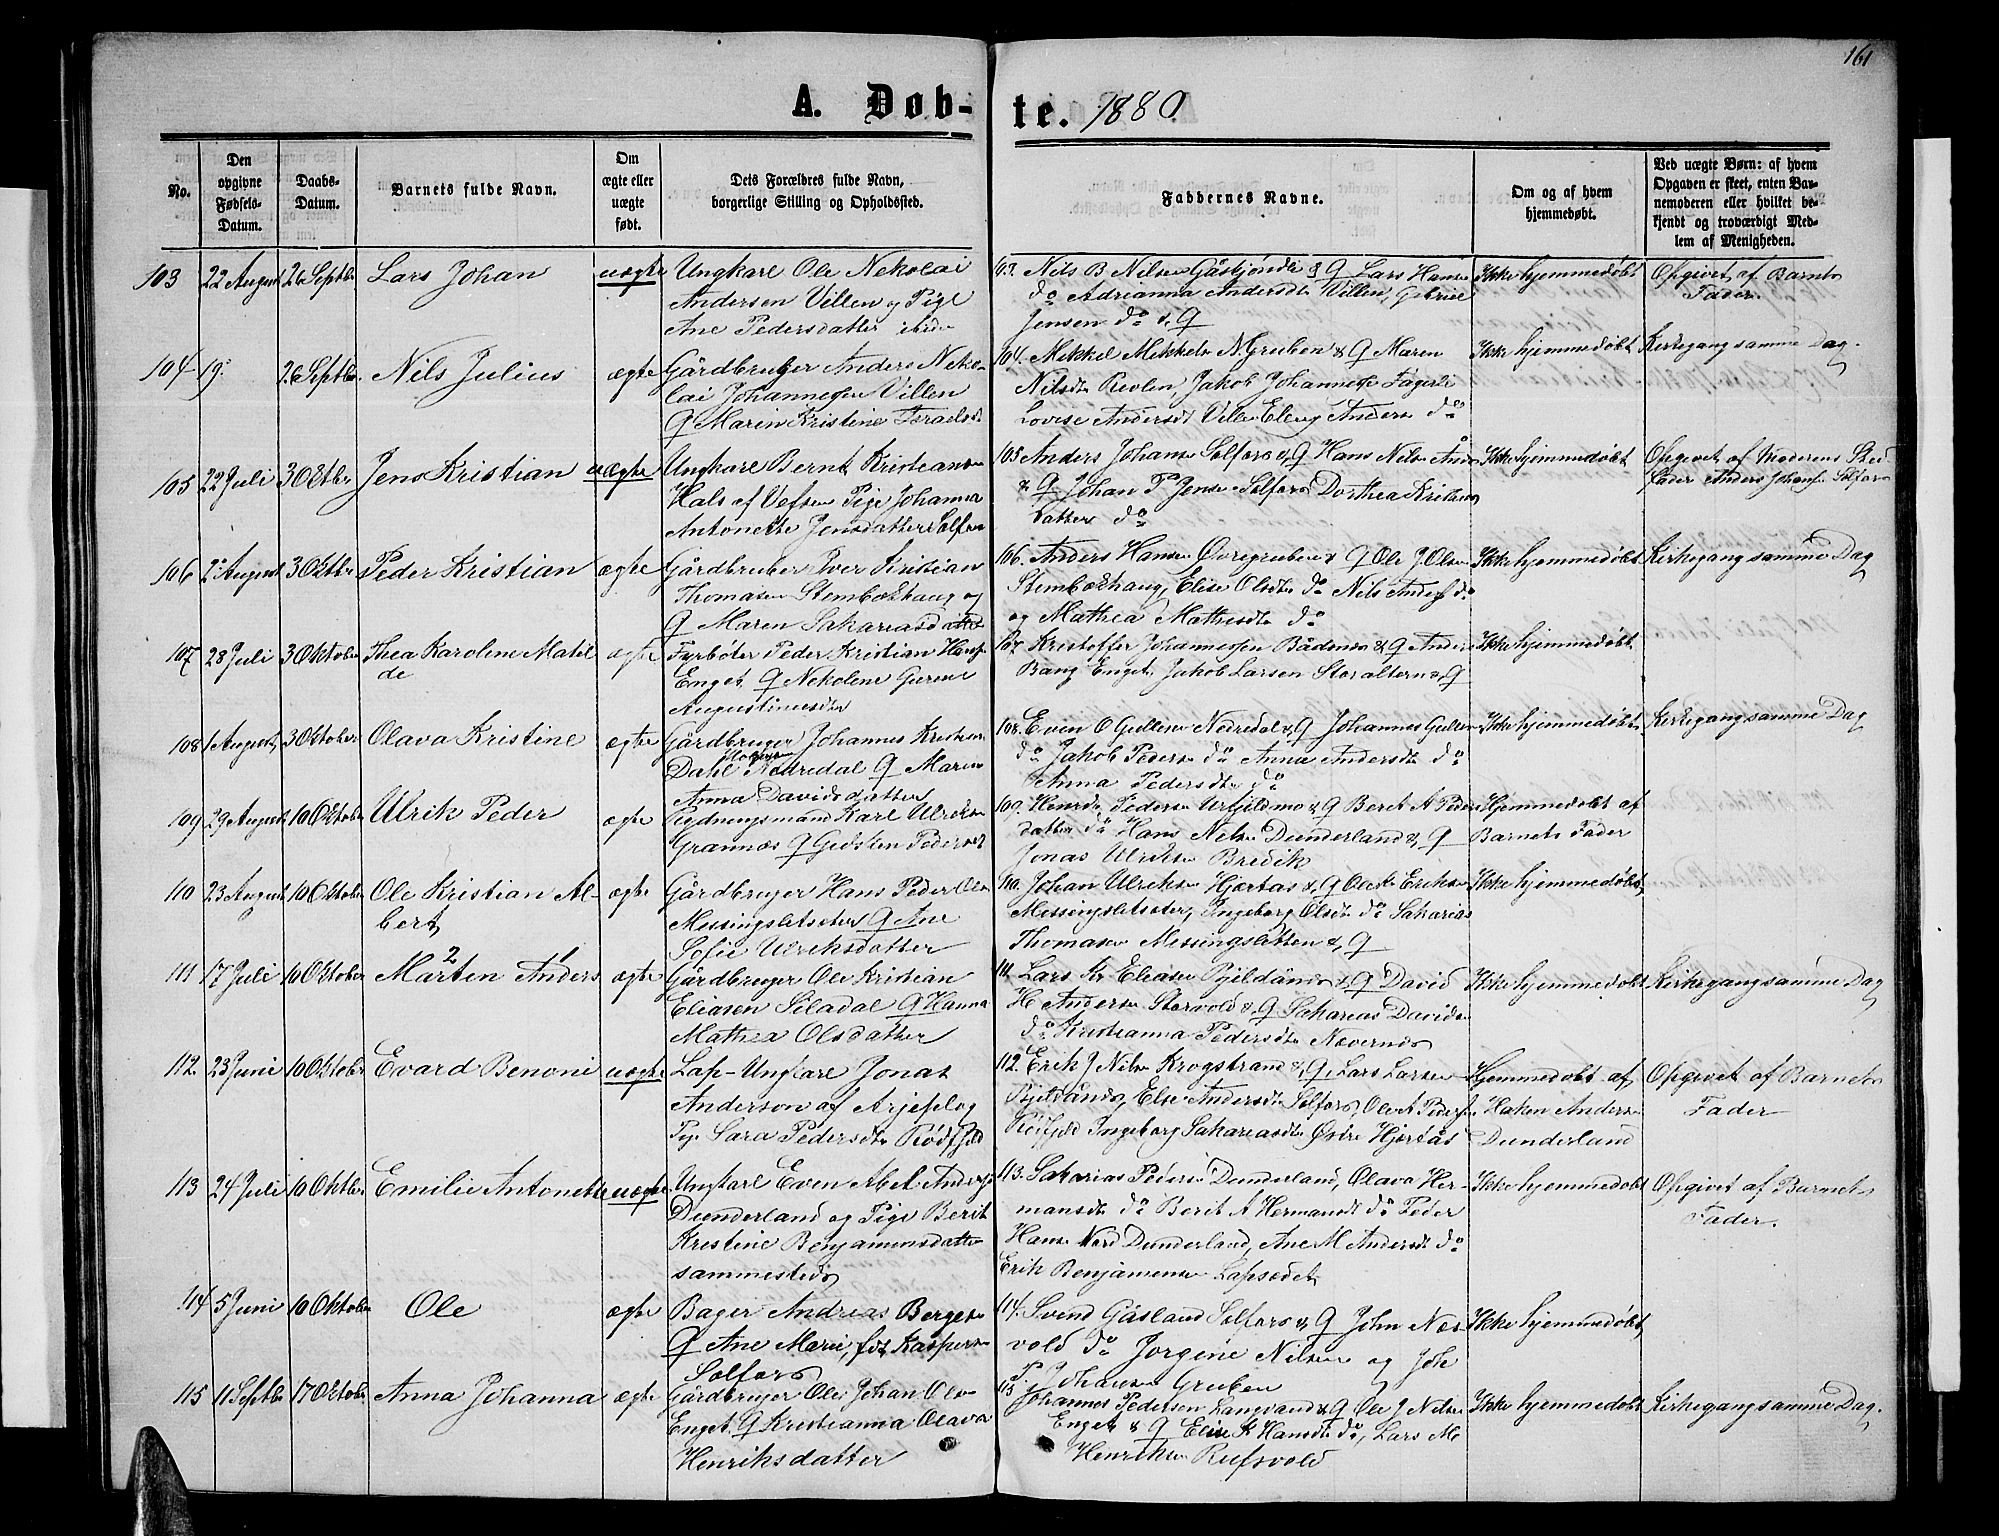 161
A. Døb-te. 1880
No.
Den opgivne Fødsels-Datum.
Daabs-Datum.
Barnets fulde Navn.
Om ægte eller uægte født.
Dets Forældres fulde Navn, borgerlige Stilling og Opholdssted.
Faddernes Navne.
Om og af hvem hjemmedøbt.
Ved uægte Børn: af hvem Opgaven er skeet, enten Barnemoderen eller hvilket bekjendt og troværdigt Medlem af Menigheden.
103 22 August 26 Septbr Lars Johan uægte
Ungkarl Ole Nekolai
Andersen Villen og Pige
Ane Pedersdatter ibid
103. Nils B Nilsen & Q Lars Hansen
do Adrianna Andersdtr Villen, Gabriel
Jensen do & Q
Ikke hjemmedøbt
Opgivet af Barnets
Fader.
104 19. 26 Septbr. Nils Julius ægte
Gårdbruger Anders Neko-
lai Johannesen Villen
Q Maren Kristine Israelsdt
104. Mikkel Mikkelsn N Gruben & Q Maren
Nilsdt Revlen, Jakob Johannesen Fagerli
Lovise Andersdt Villen Andersn do
Ikke hjemmedøbt
Kirkegang samme Dag.
105 22 Juli 3 Oktbr Jens Kristian uægte
Ungkarl Bernt Kristiansn
Hals af Vefsen Pige Johanna
Antonette Jensdatter Selfors
105 Anders Johansn Selfors & Q Hans Nilsn
& Q Johan P Jensn Selfors Dorthea Kristens
datter do
Ikke hjemmedøbt
Opgivet af Moderens Sted
fader Anders Johans. Selfors
106 2 August 3 Oktbr Peder Kristian ægte
Gårdbruger Iver Kristian
Thomasen Stenbækhaug og
Q Maren Sakariasdatter
106. Anders Hansn Øvregruben & Q Ole J Olsen
Stenbækhaug, Elise Olsdtr do Nils Anders do
og Mathea Mathisdtr do
Ikke hjemmedøbt
Kirkegang samme Dag
107 28 Juli 3 Oktober Thea Karoline Matil
de ægte
Fyrbøter Peder Kristian Hans
Enget Q Nekoline
Augustinusdtr
107. Kristoffer Johannesen Båsmo & Q Anders
Bang Enget Jakob Larsen Storaltern & Q
Ikke hjemmedøbt
108 1 August 3 Oktober Olava Kristine ægte
Gårdbruger Johannes Kristian
Dahl Nedredal Q Maren
Anna Davidsdatter
108. Even O Gullesn Nedredal & Q Johannes Gullesn
do Jakob Pedersn do Anna Andersdtr do
Anna Pedersdtr do
Ikke hjemmedøbt
Kirkegang samme Dag
109 29 August 10 Oktober Ulrik Peder ægte
Rydningsmand Karl Ulriksn
Grannæs Q Gidsken Pedersdt
109. Pedersn Urfjeldmo & Q Beret A Peders
datter do Hans Nilsn Dunderland & Q
Jonas Ulriksn Bredik
Hjemmedøbt af
Barnets Fader
110 23 August 10 Oktober Ole Kristian Al-
bert ægte
Gårdbruger Hans Peder Olsn
Messingsletseter Q Ane
Sofie Ulriksdatter
110. Johan Ulriksn Hjertås & Q Ole Eriksn
Messingsletseter, Ingeborg Olsdt do Sakarias
Thomasn Messingsletten & Q
Ikke hjemmedøbt
111 17 Juli 10 Oktober Marten Anders ægte
2 1
Gårdbruger Ole Kristian
Eliasen Stladal Q Hanna
Mathea Olsdatter
111. Lars Kr Eliasn Bjeldånes & Q David
H Andersn Storvold & Q Sakarias Davidsn
do Kristianna Pedersdtr Nævernes
Ikke hjemmedøbt
Kirkegang samme Dag
112 23 Juni 10 Oktober Evard Benoni uægte
Lap-Ungkarl Jonas
Anderson af Arjeplog
Pige Sara Pedersdtr Rødfjeld
112. Erik J Nilsn Krogstrand & Q, Lars Larsen
Bjeldånes, Else Andersdtr Selfors, Ole A Peders
Rødfjeld Ingeborg Sakariasdtr Østre Hjertås
Hjemmedøbt af
Haken Andersn
Dunderland
Opgivet af Barnets
Fader
113 24 Juli 10 Oktbr Emilie Antonette uægte
Ungkarl Even Abel Anders
Dunderland og Pige Berit
Kristine Benjaminsdatter
sammesteds
113. Sakarias Pedersn Dunderland, Olava Her-
mansdt do Berit A Hermansdt do Peder
Hansn Nord Dunderland, Ane M Andersdt do
Erik Benjaminsn Lapsædet
Ikke hjemmedøbt
Opgivet af Barnets
Fader.
114 5 Juni 10 Oktober Ole ægte
Bager Andreas Bergesn
Q Ane Marie, fdt Kaspersn
Selfors
114. Svend Gåsland Selfors & Q John Næs
vold do Jørgine Nilsn og Joh
P. Johansen Gruben
Ikke hjemmedøbt
115 11 Septbr 17 Oktober Anna Johanna ægte
Gårdbruger Ole Johan Olsn
Enget Q Kristianna Olava
Henriksdatter
115 Johannes Pedersen Langvand & Q Ole J Nilsn
Enget & Q Elise K Hansdt do, Lars M
Henriksn Rufsvold
Ikke hjemmedøbt
Kirkegang samme Dag.